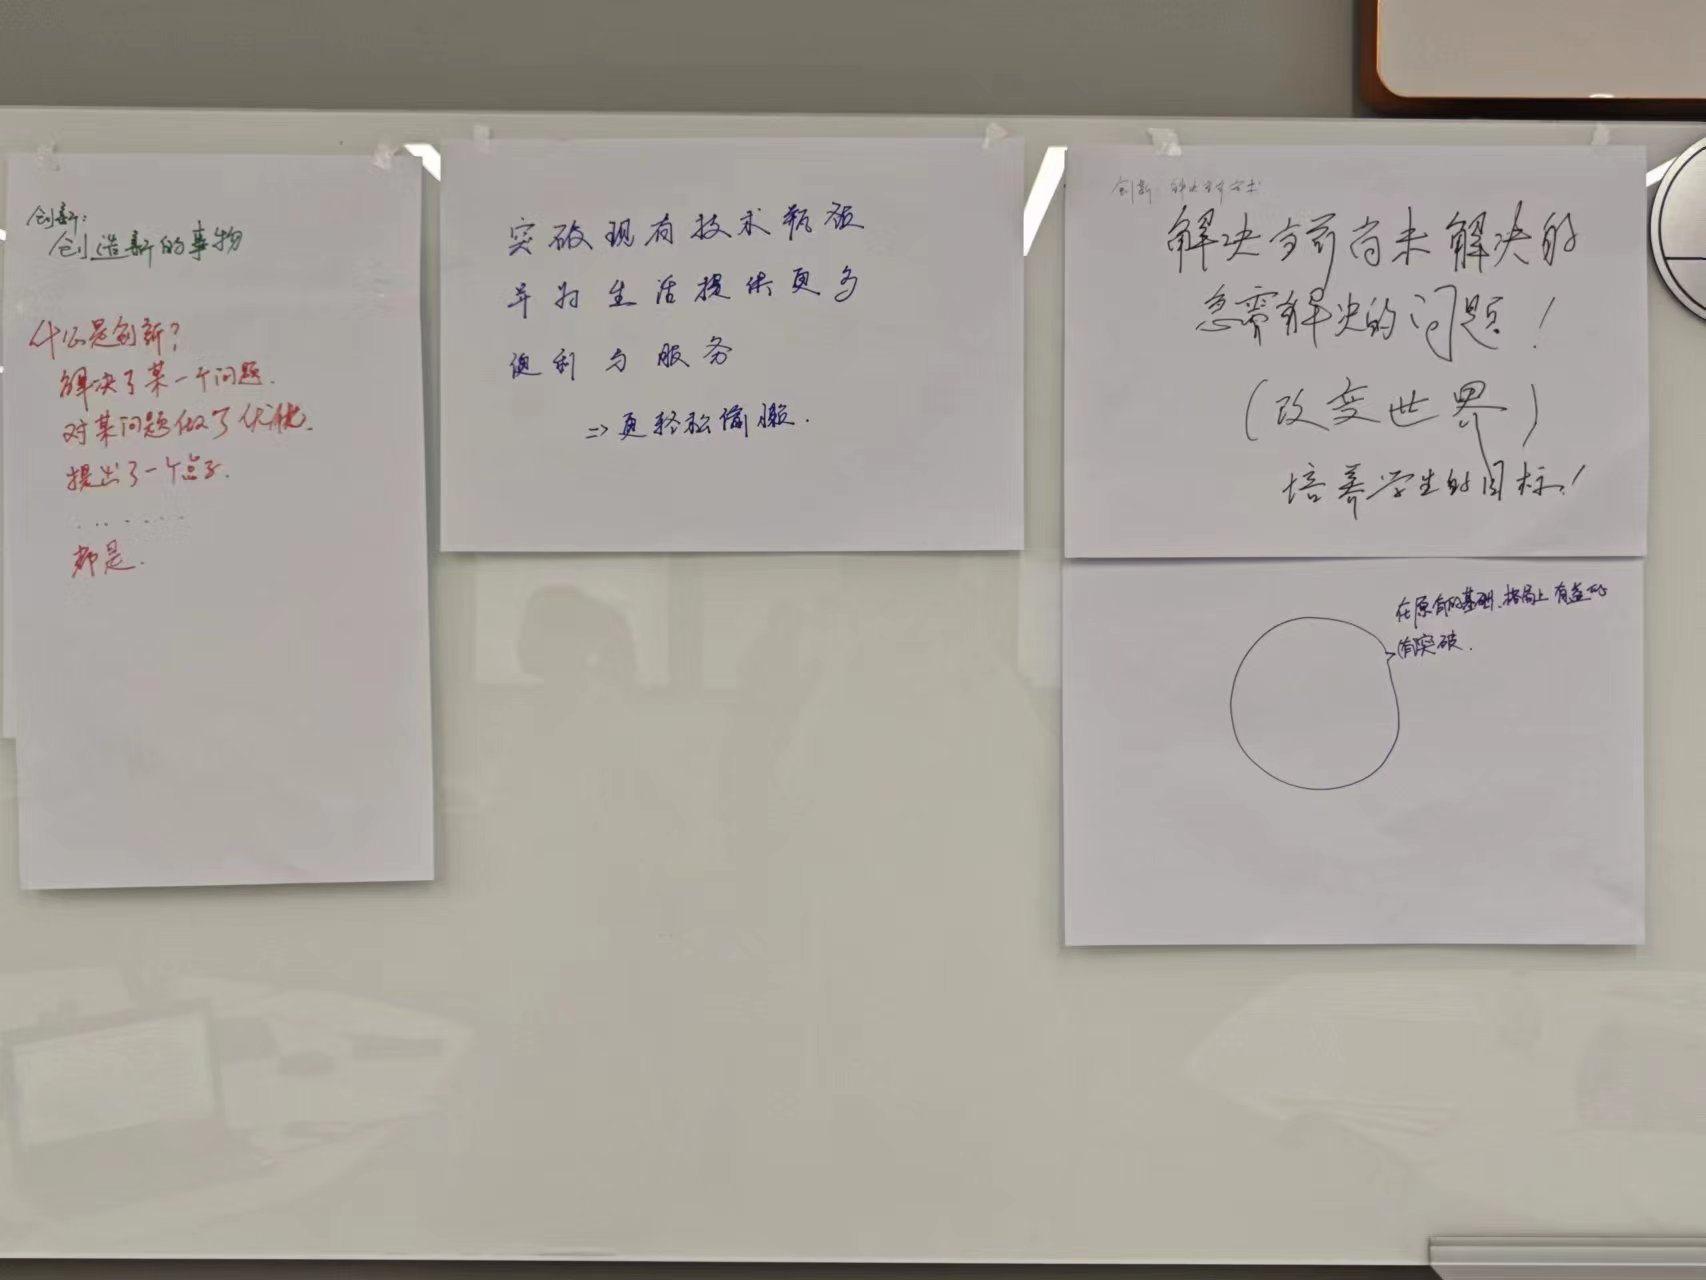 创新:
创造新的事物
什么是创新?
解决了某一个问题.
对某问题做了优化.
提出了一个点子.
......
都是.
突破现有技术瓶颈
并为生活提供更多
便利与服务
=> 更轻松偷懒.
创新:
解决当前尚未解决的
急需解决的问题!
(改变世界)
培养学生的目标!
在原有的基础、格局上有益的
有突破.